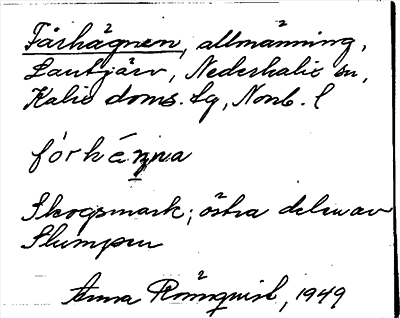 Fårhägnen, allmänning,
Lantjärv, Nederkalix sn,
Kalix doms. tg, Norrb. l
fórhénna
Skogsmark; östra delen av
Slumpen
Anna Römquist, 1949